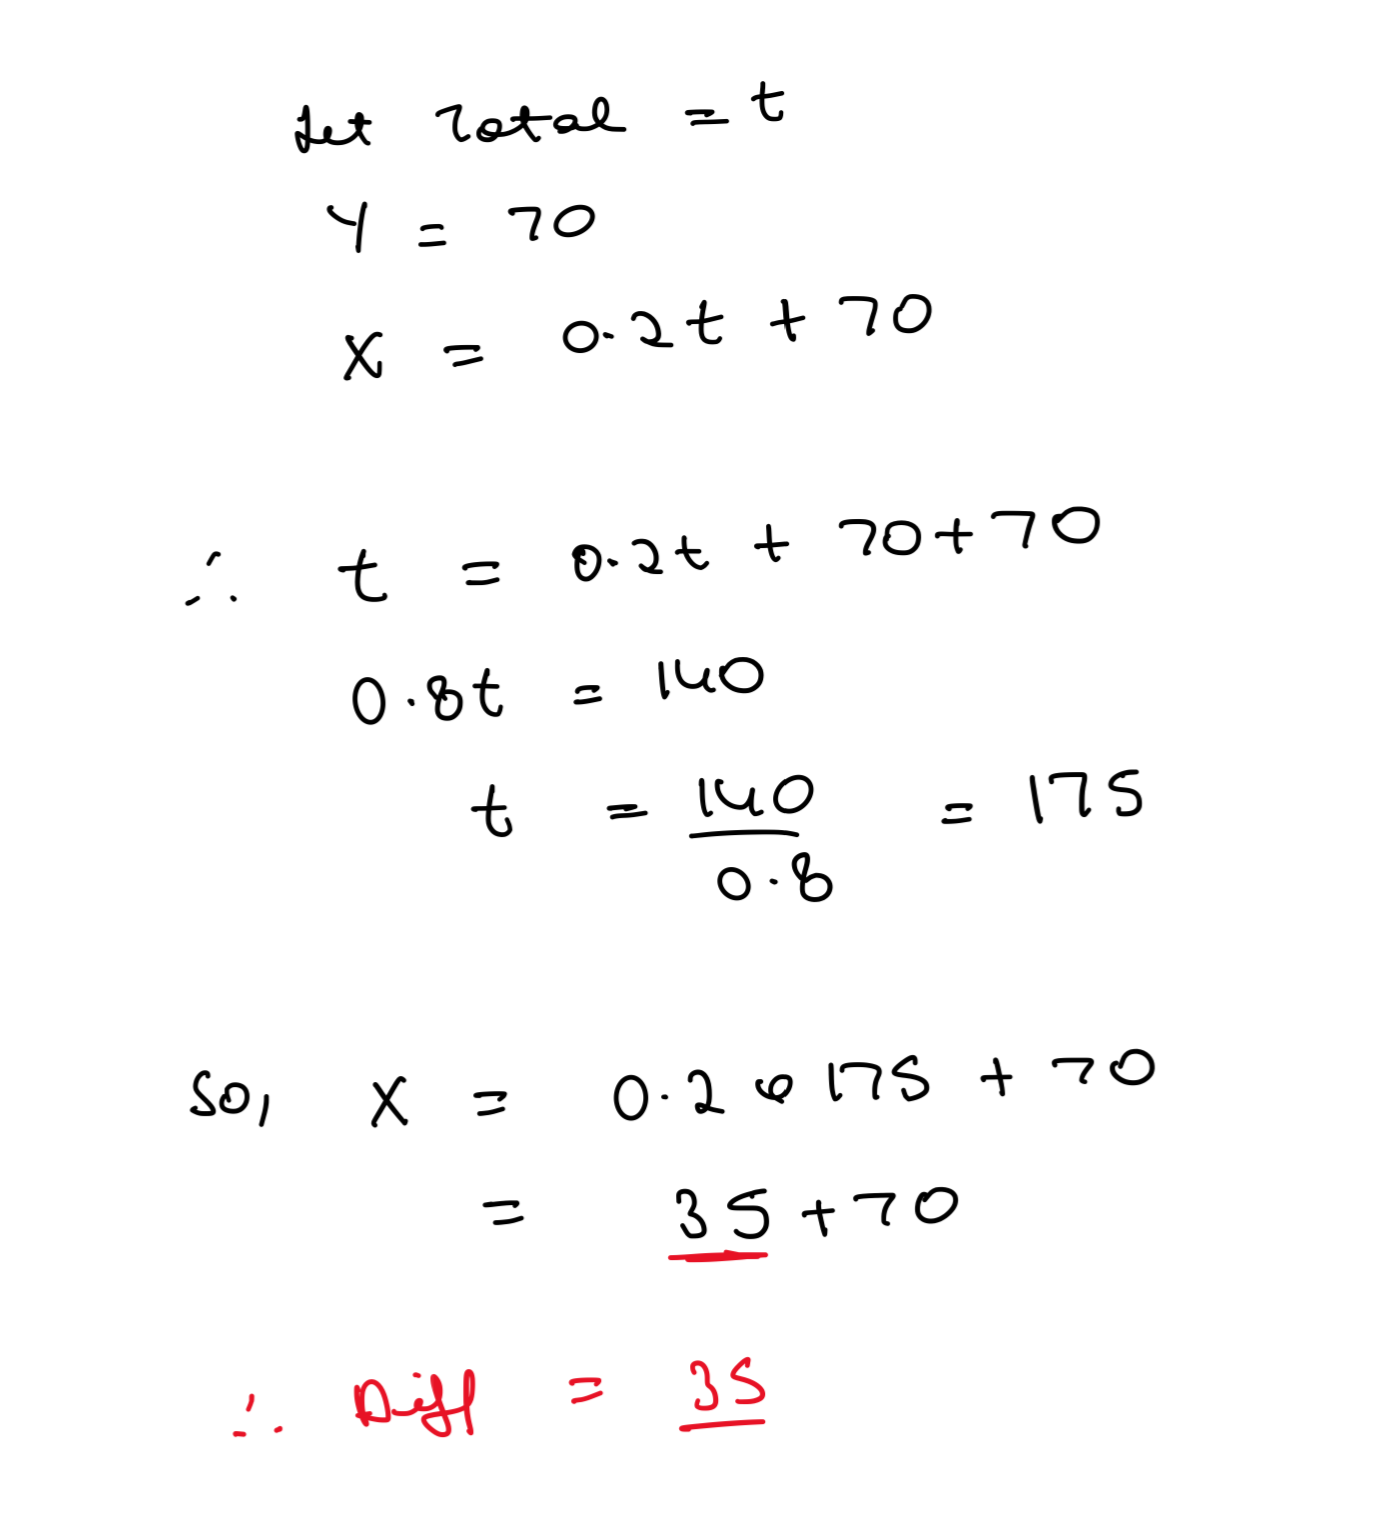 Let Total = t
Y = 70
X = 0.2t + 70
∴ t = 0.2t + 70+70
0.8t = 140
t = 140/0.8 = 175
So, X = 0.2 175 + 70
= 35 + 70
∴ Diff = 35